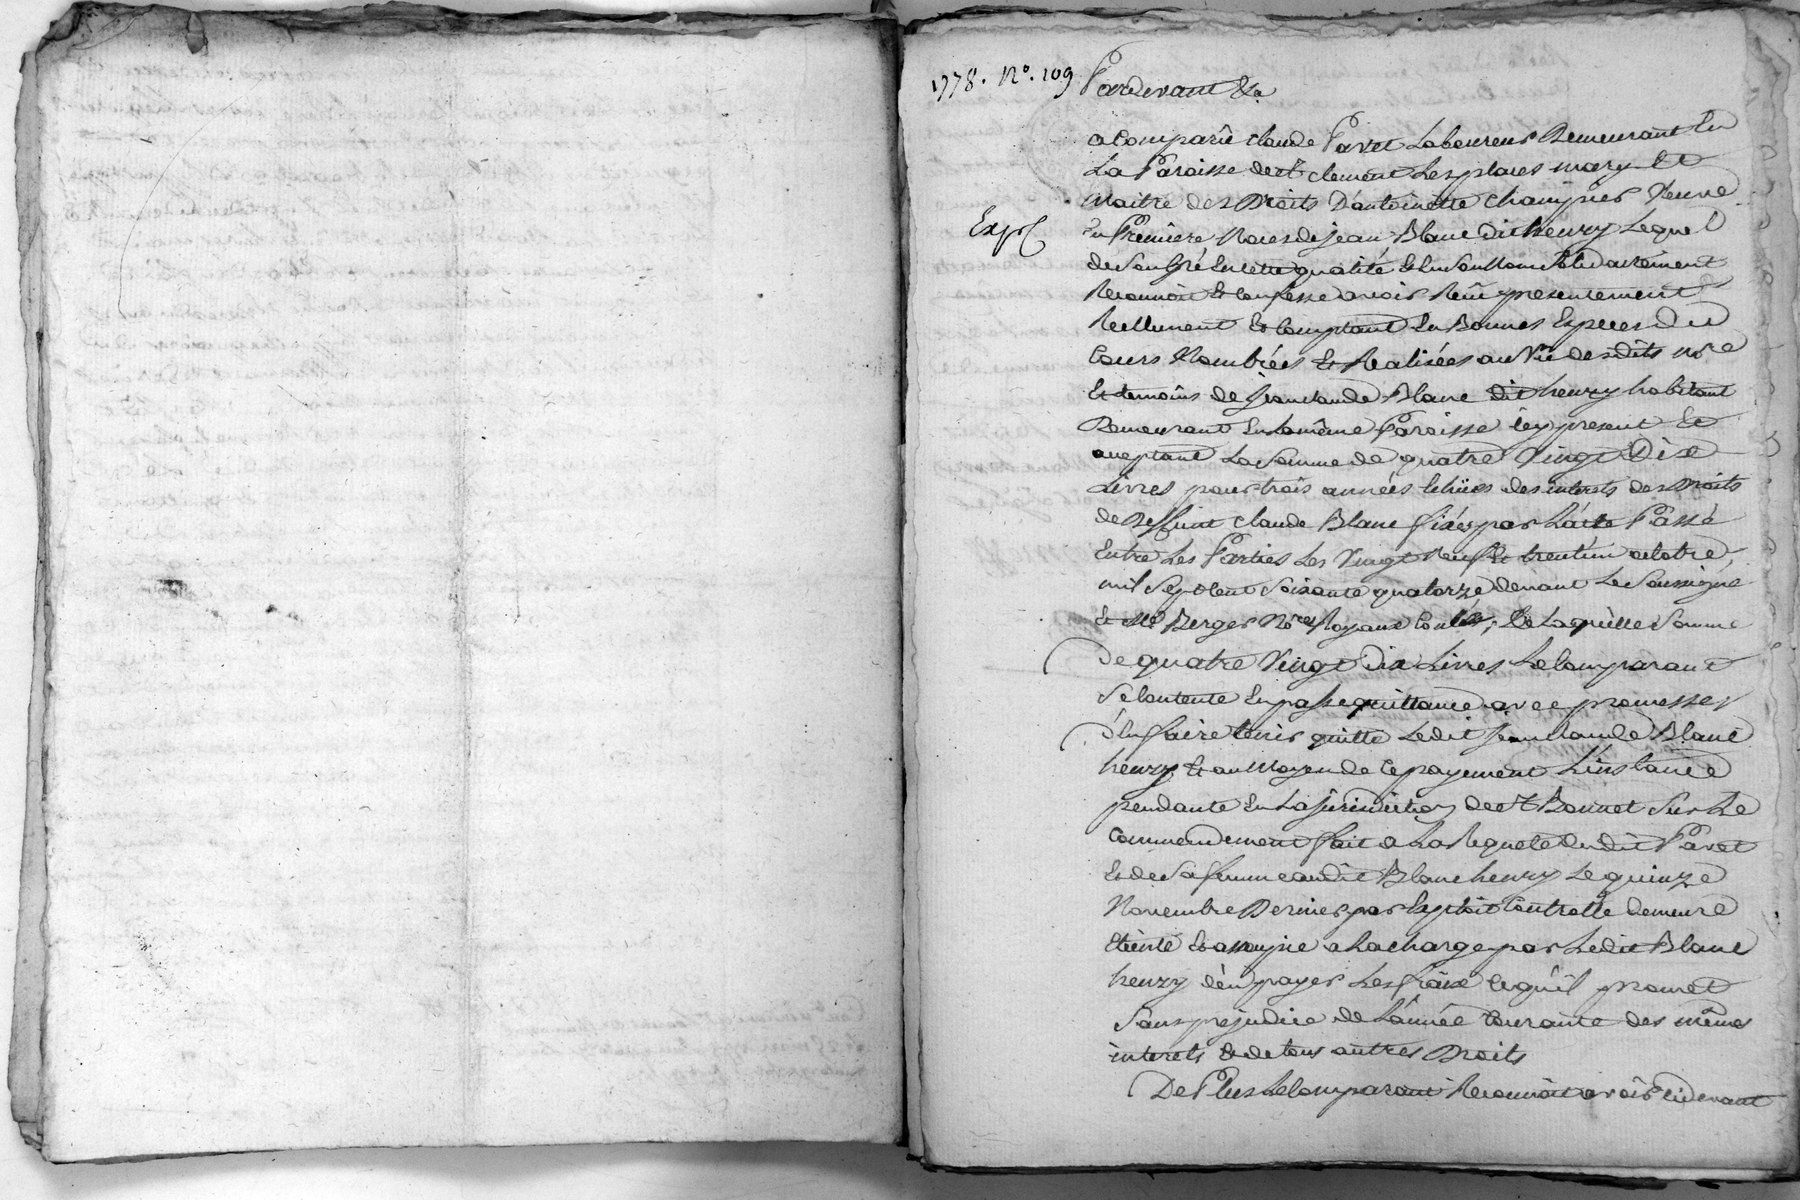 1778. N°. 109
Pardevant &a
a Comparû claude Pavet Laboureur Demeurant En
La Paroisse de st clement Les places mary Et
Maitre des Droits D'antoinette champier Veuve
En Premiere Noces de jean Blanc dit henry Lequel
Expé
de Son Gré En cette qualité & En Son Nom Solidairement
Reconnoit Et Confesse avoir Reçû presentement
Reellement Et Comptant En Bonnes Especes Du
Cours Nombrées Et Realisées au Vû des dits no.re
Et temoins de jean claude Blanc dit henry habitant
Demeurant En la même Paroisse icy present Et
acceptant La Somme de quatre Vingt Dix
Livres pour trois années Echües des interets des Droits
de Deffunt claude Blanc fixés par L'acte Passé
Entre Les Parties Les Vingt Neuf Et trentun octobre
mil Sept Cent Soixante quatorze devant Le Soussigné
Et Me Berger No.res Royaux Con.lés, De Laquelle Somme
De quatre Vingt Dix Livres Le Comparant
Se Contente En passe quittance avec promesse
d'En faire tenir quitte Ledit jean claude Blanc
henry Et au Moyen de Ce payement L'instance
pendante En La jurisdiction de st Bonnet Sur Le
Commendement fait a La Requete du dit Pavet
Et de Sa femme audit Blanc henry Le quinze
Novembre Dernier par Exploit Controllé demeure
Eteinte Et assoupie a La charge par Ledit Blanc
henry d'En payer Les fraix Ce qu'il promet
Sans prejudice de L'année Courante des mêmes
interets & de tous autres Droits
De Plus Le Comparant Reconnoit avoir Cidevant